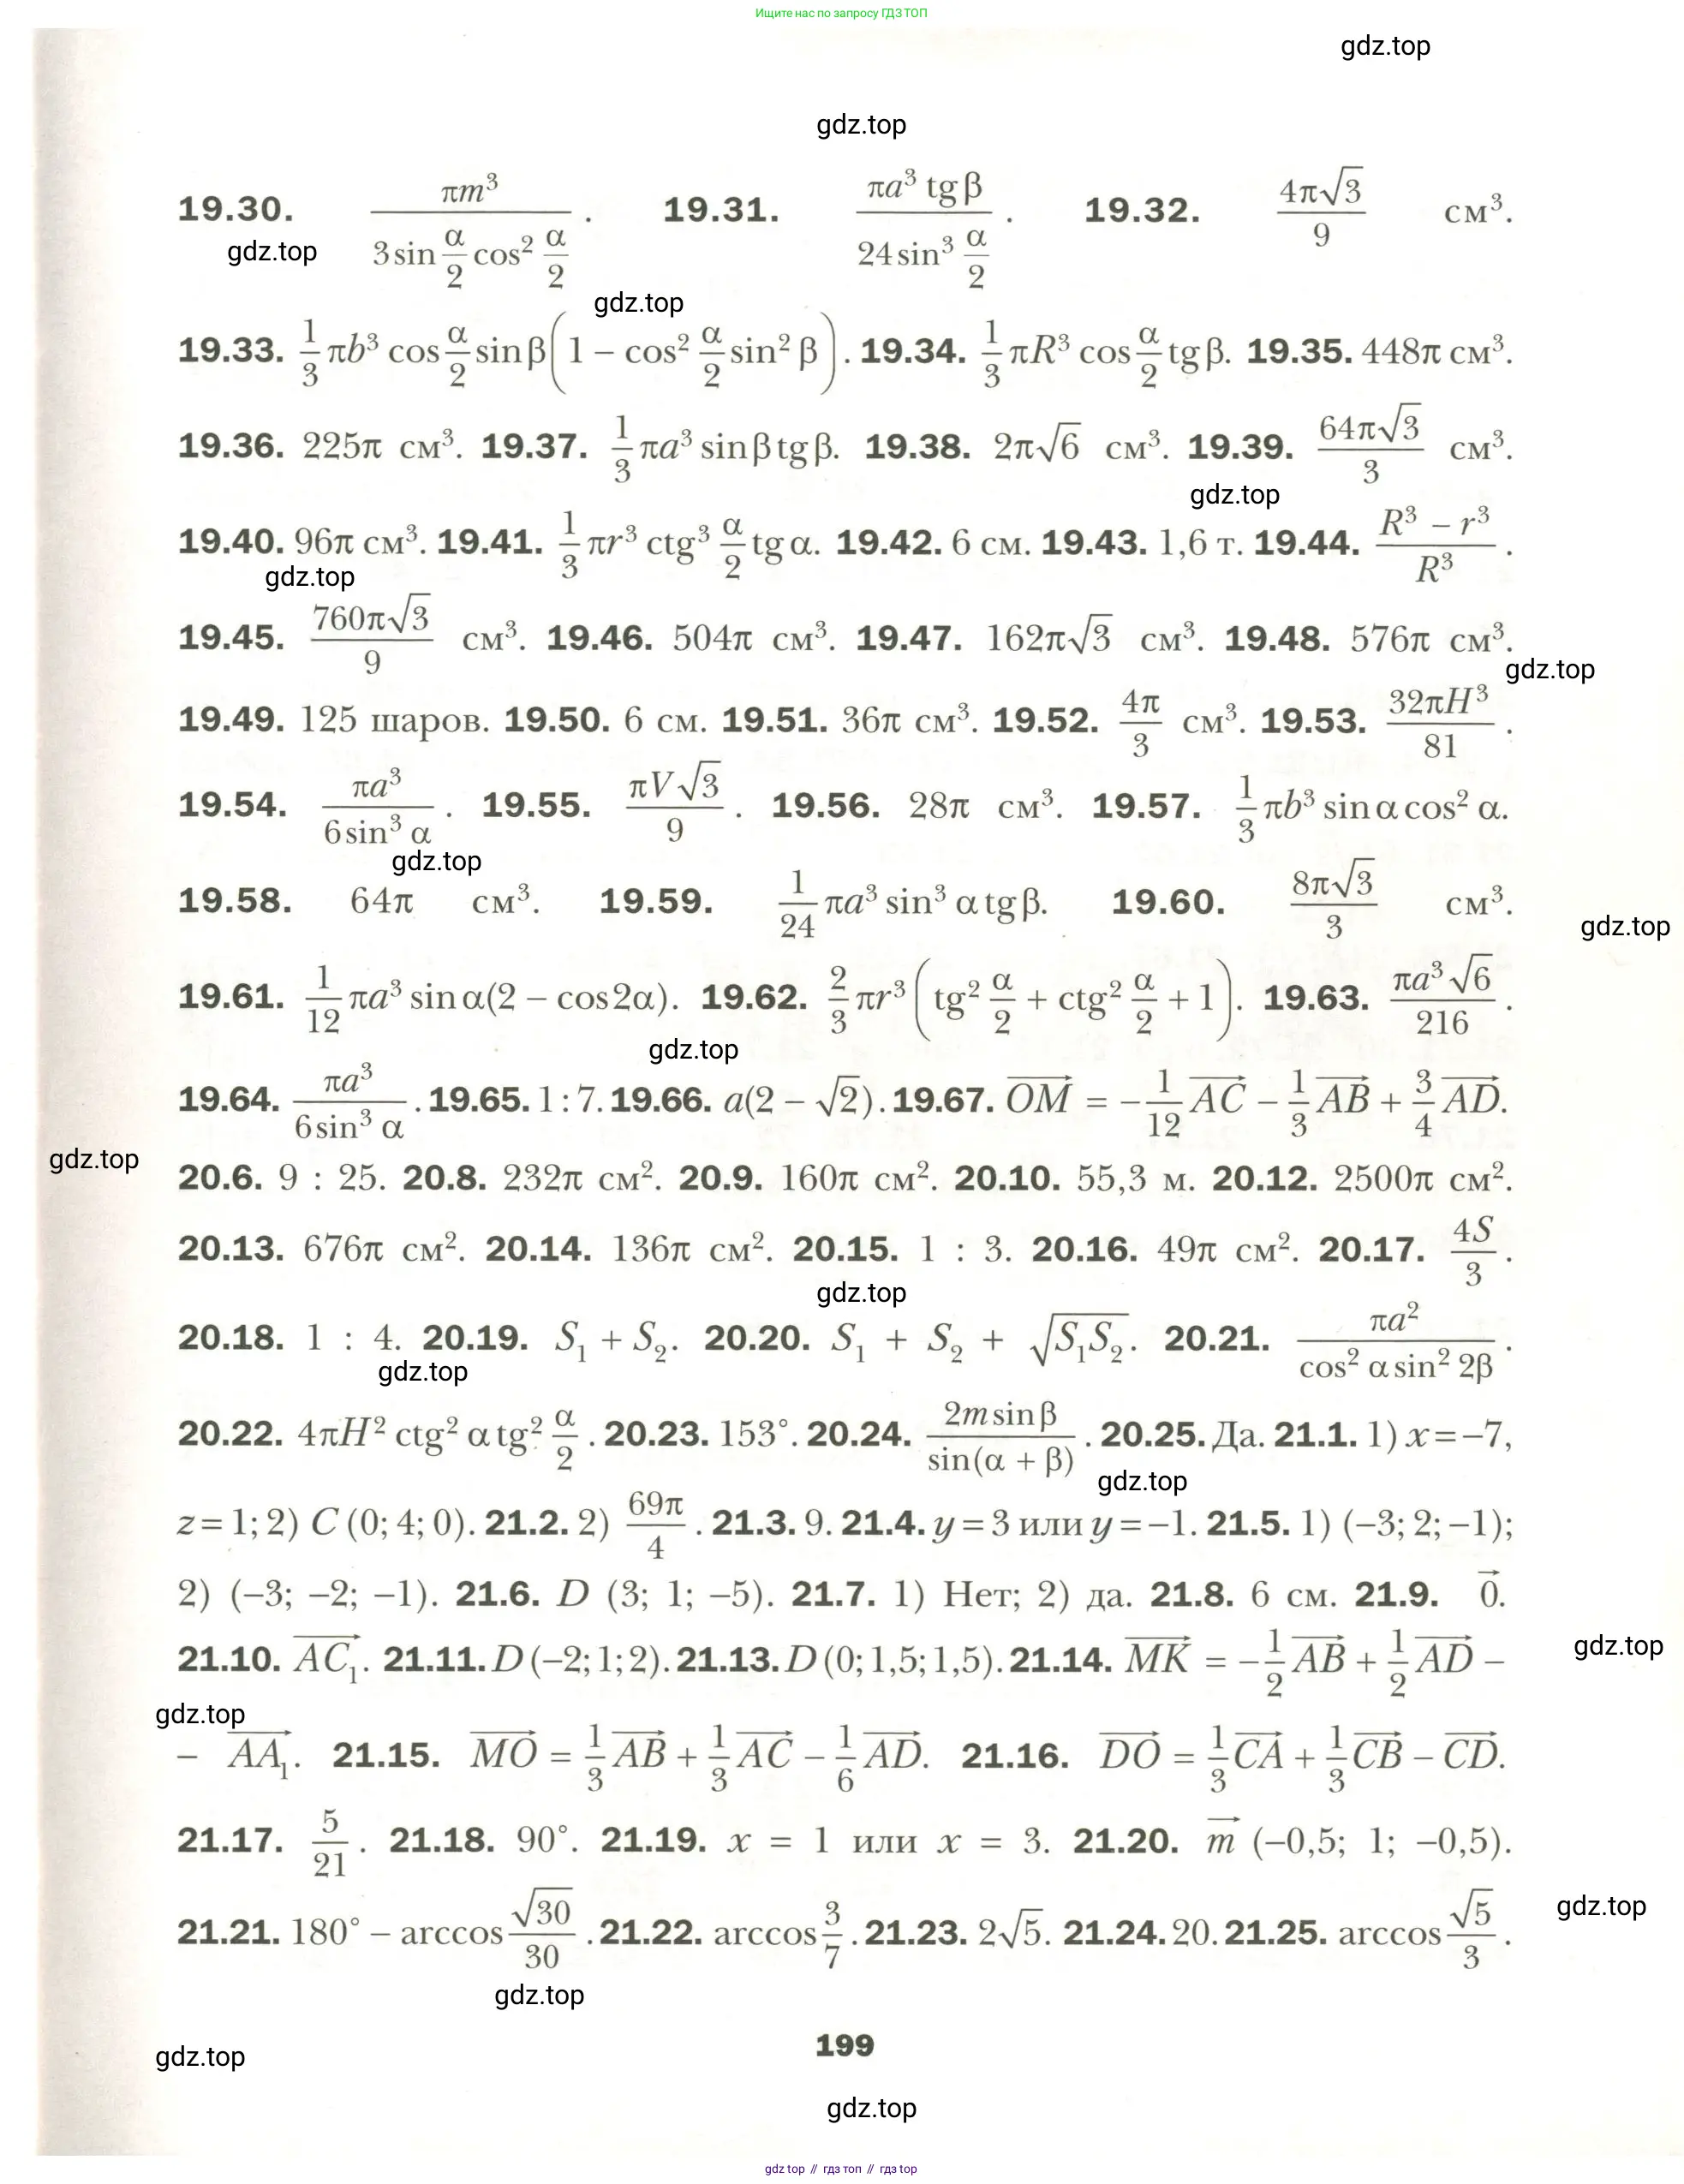 Ищите нас по запросу ГДЗ ТОП
gdz.top
gdz.top
19.30. πm³ / (3 sin α/2 cos² α/2). 19.31. πa³ tg β / (24 sin³ α/2). 19.32. 4π√3/9 см³.
gdz.top
gdz.top
19.33. 1/3 πb³ cos α/2 sin β(1 – cos² α/2 sin² β). 19.34. 1/3 πR³ cos α/2 tg β. 19.35. 448π см³.
19.36. 225π см³. 19.37. 1/3 πa³ sin β tg β. 19.38. 2π√6 см³. 19.39. 64π√3/3 см³.
gdz.top
19.40. 96π см³. 19.41. 1/3 πr³ ctg³ α/2 tg α. 19.42. 6 см. 19.43. 1,6 т. 19.44. (R³ – r³)/R³.
gdz.top
19.45. 760π√3/9 см³. 19.46. 504π см³. 19.47. 162π√3 см³. 19.48. 576π см³.
gdz.top
19.49. 125 шаров. 19.50. 6 см. 19.51. 36π см³. 19.52. 4π/3 см³. 19.53. 32πH³/81.
19.54. πa³/(6 sin³ α). 19.55. πV√3/9. 19.56. 28π см³. 19.57. 1/3 πb³ sin α cos² α.
gdz.top
19.58. 64π см³. 19.59. 1/24 πa³ sin³ α tg β. 19.60. 8π√3/3 см³.
gdz.top
19.61. 1/12 πa³ sin α(2 – cos 2α). 19.62. 2/3 πr³(tg² α/2 + ctg² α/2 + 1). 19.63. πa³√6/216.
gdz.top
19.64. πa³/(6 sin³ α). 19.65. 1 : 7. 19.66. a(2 – √2). 19.67. OM⃗ = –1/12 AC⃗ – 1/3 AB⃗ + 3/4 AD⃗.
gdz.top
20.6. 9 : 25. 20.8. 232π см². 20.9. 160π см². 20.10. 55,3 м. 20.12. 2500π см².
20.13. 676π см². 20.14. 136π см². 20.15. 1 : 3. 20.16. 49π см². 20.17. 4S/3.
gdz.top
20.18. 1 : 4. 20.19. S₁ + S₂. 20.20. S₁ + S₂ + √(S₁S₂). 20.21. πa²/(cos² α sin² 2β).
gdz.top
20.22. 4πH² ctg² α tg² α/2. 20.23. 153°. 20.24. 2m sin β/sin(α + β). 20.25. Да. 21.1. 1) x = –7,
gdz.top
z = 1; 2) C (0; 4; 0). 21.2. 2) 69π/4. 21.3. 9. 21.4. y = 3 или y = –1. 21.5. 1) (–3; 2; –1);
2) (–3; –2; –1). 21.6. D (3; 1; –5). 21.7. 1) Нет; 2) да. 21.8. 6 см. 21.9. 0⃗.
21.10. AC₁⃗. 21.11. D (–2; 1; 2). 21.13. D (0; 1,5; 1,5). 21.14. MK⃗ = –1/2 AB⃗ + 1/2 AD⃗ –
gdz.top
gdz.top
– AA₁⃗. 21.15. MO⃗ = 1/3 AB⃗ + 1/3 AC⃗ – 1/6 AD⃗. 21.16. DO⃗ = 1/3 CA⃗ + 1/3 CB⃗ – CD⃗.
21.17. 5/21. 21.18. 90°. 21.19. x = 1 или x = 3. 21.20. m⃗ (–0,5; 1; –0,5).
21.21. 180° – arccos √30/30. 21.22. arccos 3/7. 21.23. 2√5. 21.24. 20. 21.25. arccos √5/3.
gdz.top
gdz.top
199
gdz.top
gdz.top
gdz top // гдз топ // гдз top